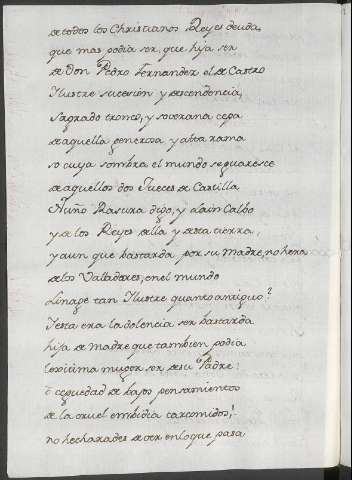 de todos los Christianos Reyes deuda,
que mas podia ser, que hija ser
de Don Pedro Fernandez el de Castro
Ilustre sucesión y descendencia,
sagrado tronco, y soverana cepa
de aquella generosa y alta rama
so cuya sombra el mundo se guaresce
de aquellos dos Jueces de Castilla
Nuño Rasura digo, y Lain Calbo
y de los Reyes della y desta tierra,
y aun que bastarda por su Madre, no hera
de los Valladares, en el mundo
Linage tan Ilustre quanto antiguo?
I esta era la dolencia ser bastarda
hija de Madre que tambien podia
lexitima muger ser de su Padre!
O ceguedad de bajos pensamientos
de la cruel embidia carcomidos!
no hecharades de ver en lo que pasa